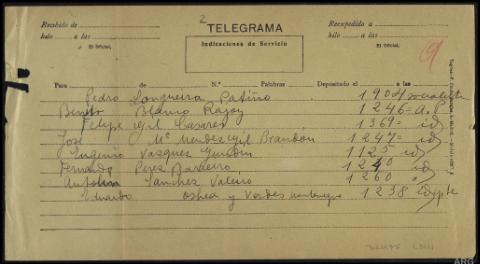 2
TELEGRAMA
Recibido de
hilo a las
El Oficial,
Indicaciones de Servicio
Expedido a
hilo a las
El Oficial,
9
Para de N.º Palabras Depositado el a las
Pedro Longueira Patiño 1904 socialista
Benito Blanco Rajoy 1246 = a. P
Felipe Gil Casares 1369 = id
José Mª Mendez Gil Brandon 1247 = id
Eugenio Vazquez Gundin 1125 id
Fernando Perez Barreiro 1240 id
Antolin Sanchez Valeiro 1260 "
Eduardo Oshea y Verdes montenegro 1238 idpte
ARG